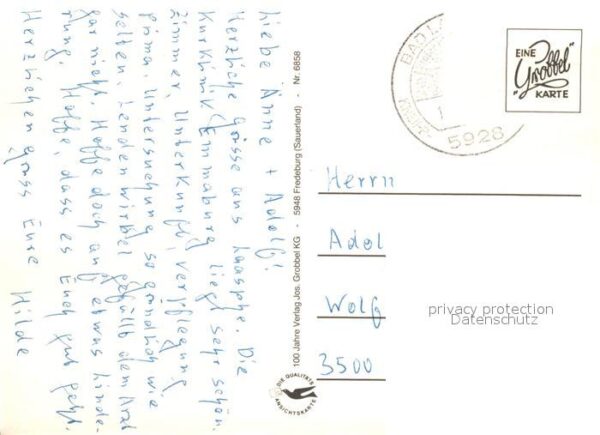 Liebe Änne + Adolf!
Herzliche Grüsse aus Laasphe. Die
Kurklinik (Emmaburg liegt sehr schön.
Zimmer, Unterkunft, Verpflegung
prima. Untersuchung so gründlich wie
selten. Lendenwirbel gefällt dem Arzt
gar nicht. Hoffe doch auf etwas Linde-
rung. Hoffe, dass es Euch gut geht.
Herzlichen Gruss Eure Hilde
100 Jahre Verlag Jos. Grobbel KG - 5948 Fredeburg (Sauerland) - Nr. 6858
DIE QUALITÄTS
ANSICHTSKARTE
BAD LA
5928
EINE
"Grobbel"
KARTE
Herrn
Adol
Wolf
3500
privacy protection
Datenschutz